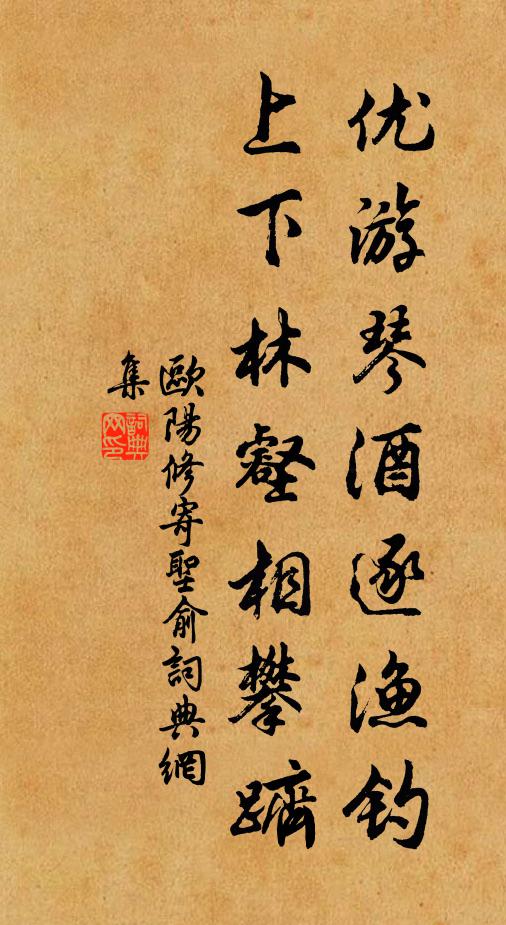 优游琴酒逐渔钓
上下林壑相攀跻
歐陽修寄聖俞詞典網
集
詞典
网印